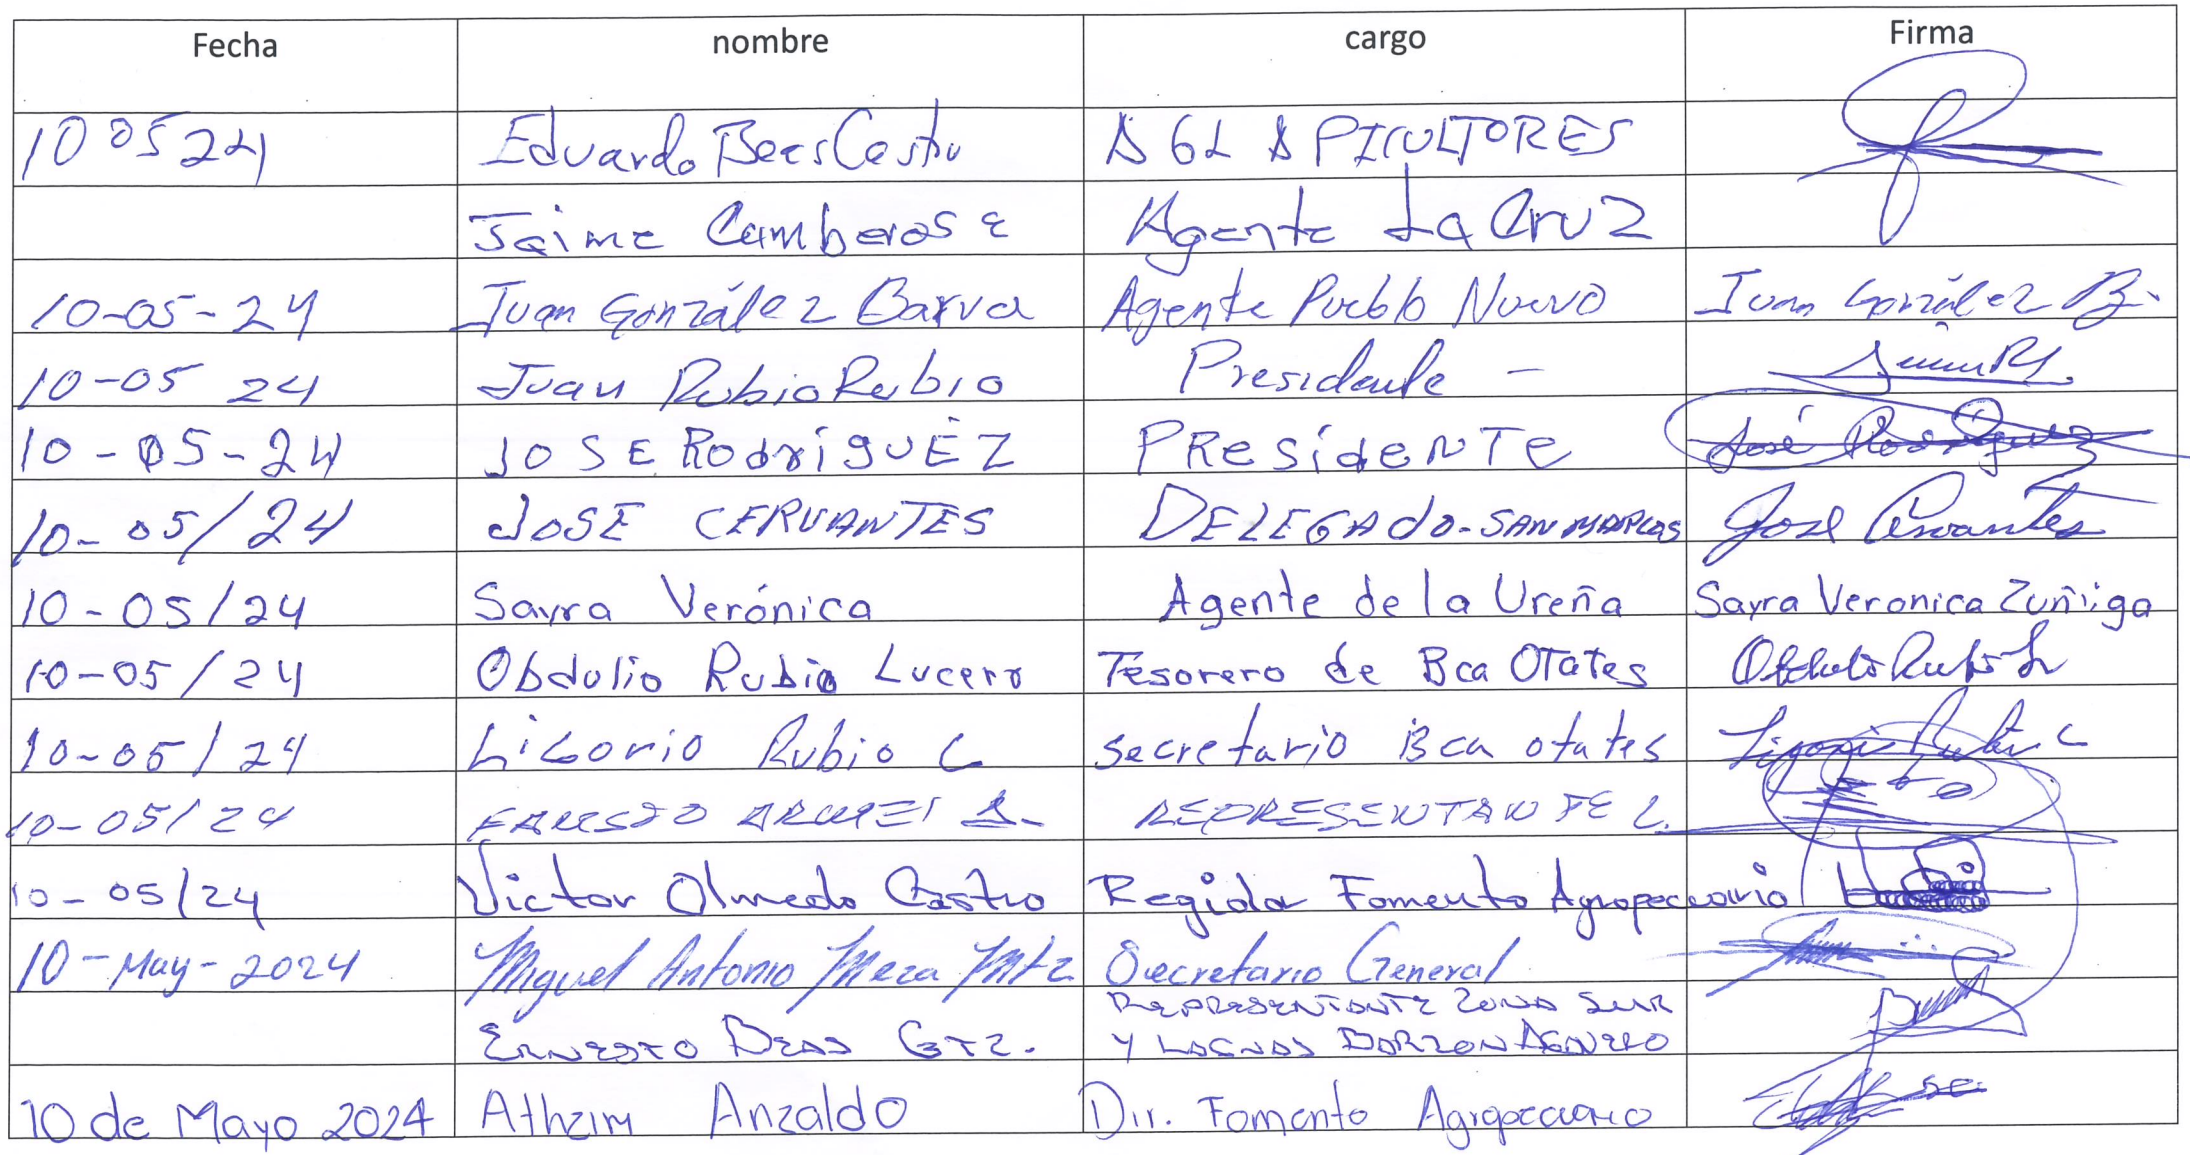 Fecha nombre cargo Firma
10 05 24 Eduardo Beas Castro A G L A PICULTORES
Jaime Camberos E Agente La Cruz
10-05-24 Juan González Barva Agente Pueblo Nuevo Juan González B.
10-05 24 Juan Rubio Rubio Presidente -
10-05-24 JOSE RodríGUEZ PResideNTe José Rodríguez
10-05/24 JOSE CERVANTES DELEGAdO-SAN MARCOS José Cervantes
10-05/24 Sayra Verónica Agente de la Ureña Sayra Veronica Zuñiga
10-05/24 Obdulio Rubio Lucero Tesorero de Bca OTates Obdulio Rubio L
10-05/24 Liborio Rubio C secretario Bca otates Rubio C
10-05/24 FAUSTO REPRESENTANTE L.
10-05/24 Victor Olmedo Castro Regidor Fomento Agropecuario
10-May-2024 Miguel Antonio Meza Mtz Secretario General
ERNESTO BEAS GTZ. REPRESENTANTE ZONA SUR
Y LAGUNAS
10 de Mayo 2024 Athzim Anzaldo Dir. Fomento Agropecuario